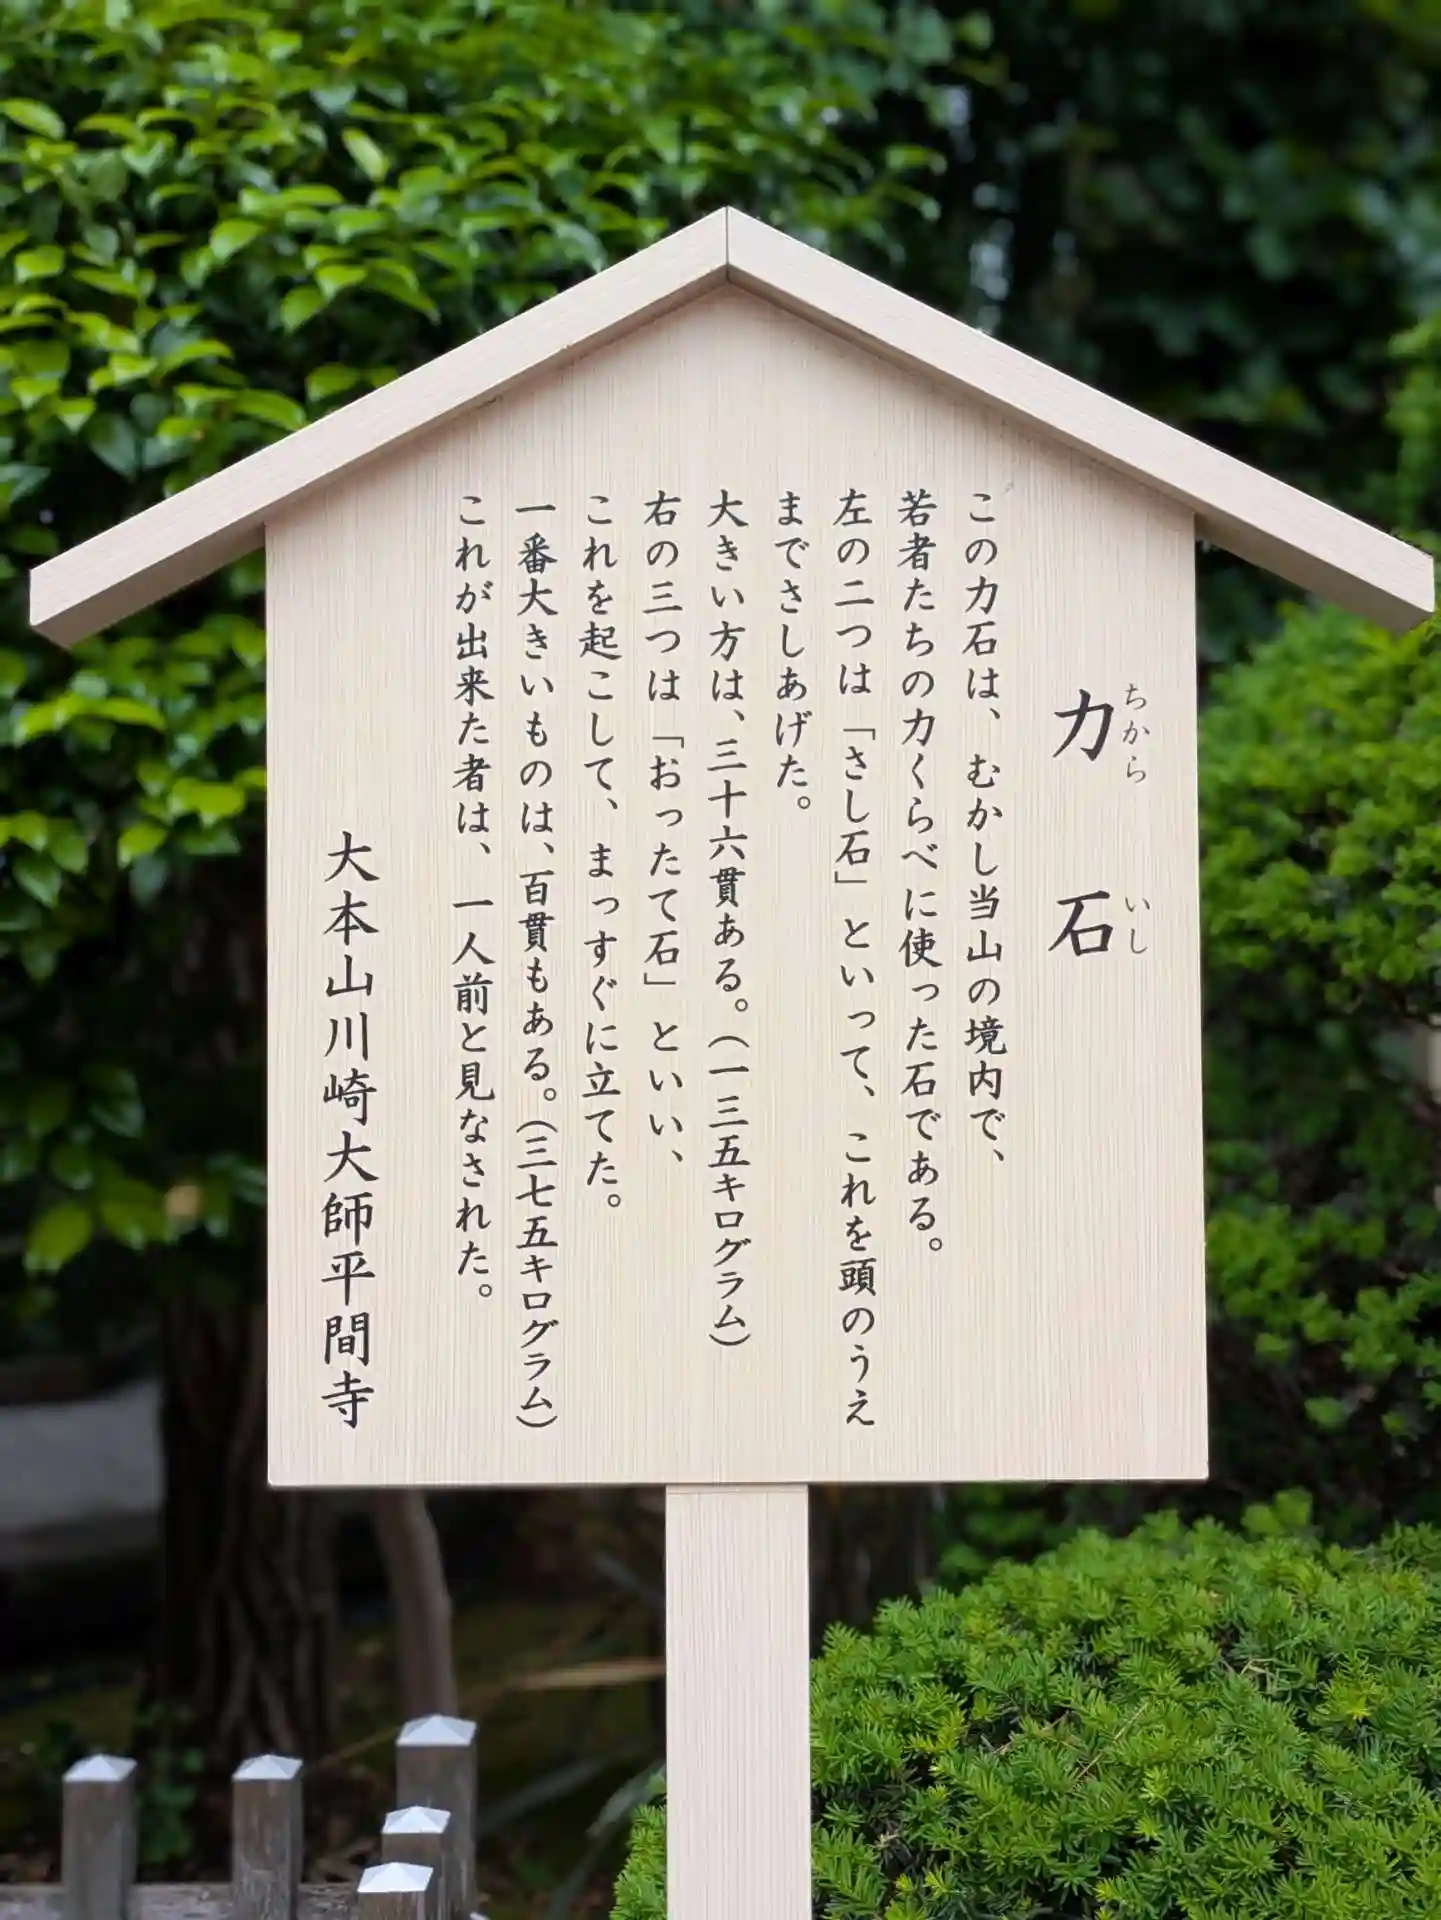 力石
ちからいし
この力石は、むかし当山の境内で、
若者たちの力くらべに使った石である。
左の二つは「さし石」といって、これを頭のうえ
までさしあげた。
大きい方は、三十六貫ある。(一三五キログラム)
右の三つは「おったて石」といい、
これを起こして、まっすぐに立てた。
一番大きいものは、百貫もある。(三七五キログラム)
これが出来た者は、一人前と見なされた。
大本山川崎大師平間寺